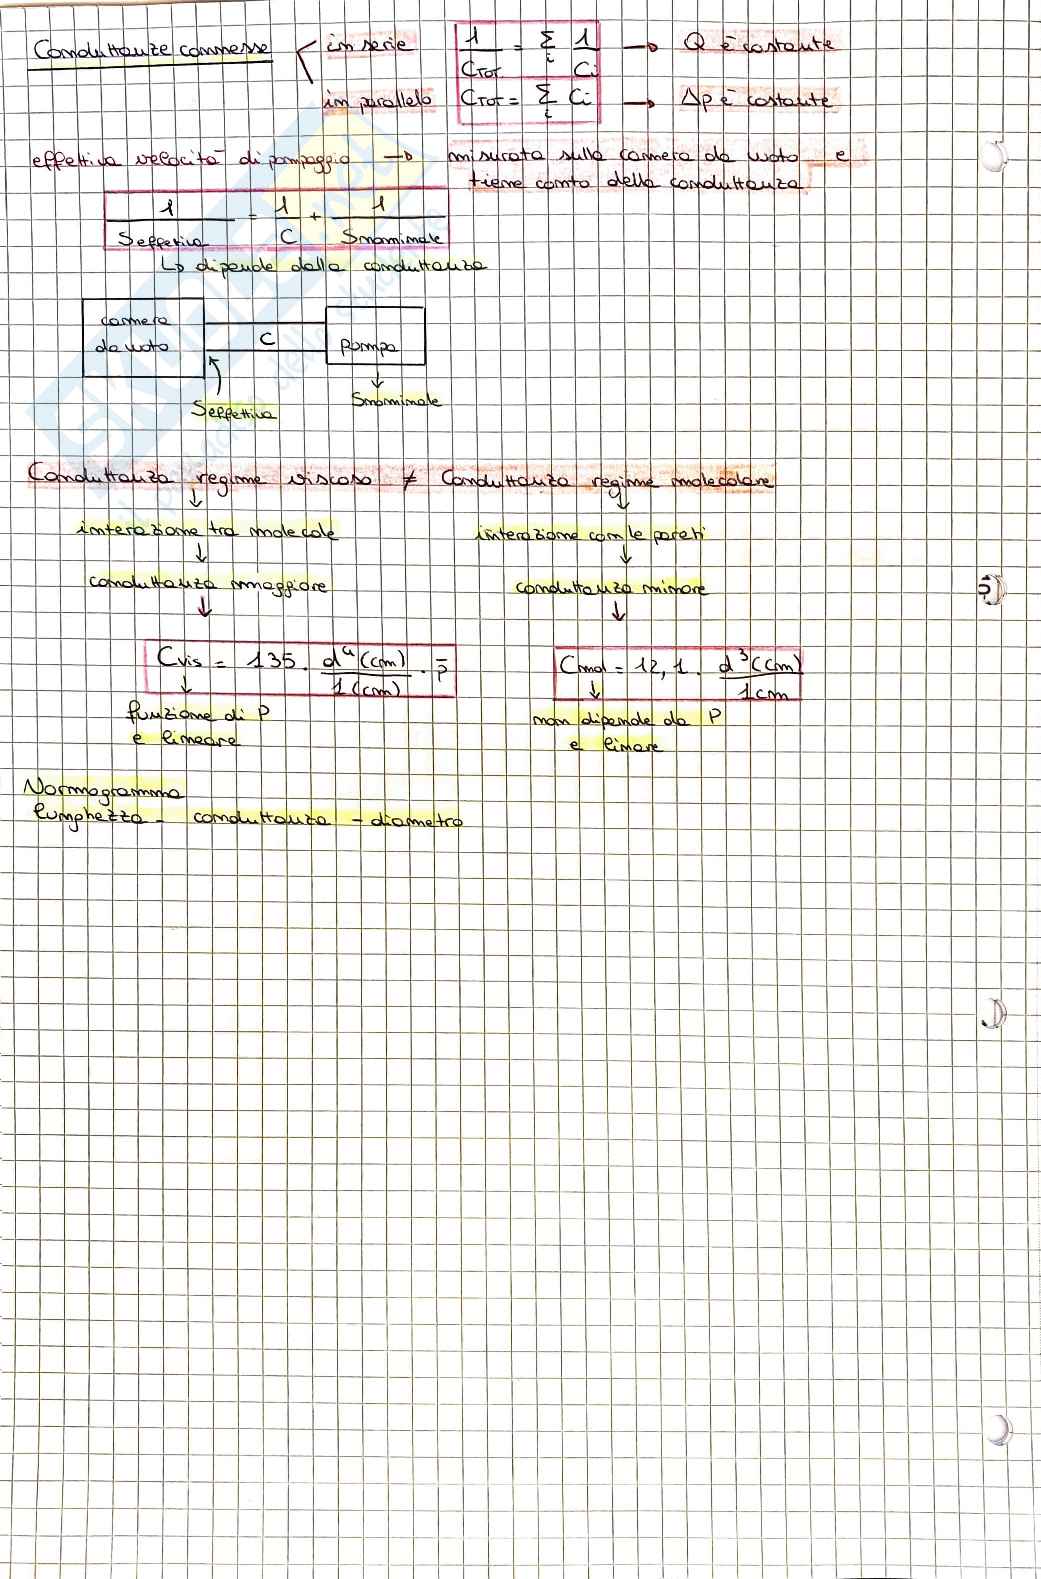 Conduttanze connesse
in serie 1/CTOT = Σi 1/Ci → Q è costante
in parallelo CTOT = Σi Ci → Δp è costante
effettiva velocità di pompaggio → misurata sulla camera da vuoto e
tiene conto della conduttanza
1/Seffettiva = 1/C + 1/Snominale
↳ dipende dalla conduttanza
camera
da vuoto
C
pompa
Seffettiva
Snominale
Conduttanza regime viscoso ≠ Conduttanza regime molecolare
interazione tra molecole
interazione con le pareti
conduttanza maggiore
conduttanza minore
Cvis = 135 · d⁴(cm)/l(cm) · p̄
Cmol = 12,1 · d³(cm)/l cm
funzione di P
e lineare
non dipende da P
e linare
Normogramma
lunghezza - conduttanza - diametro